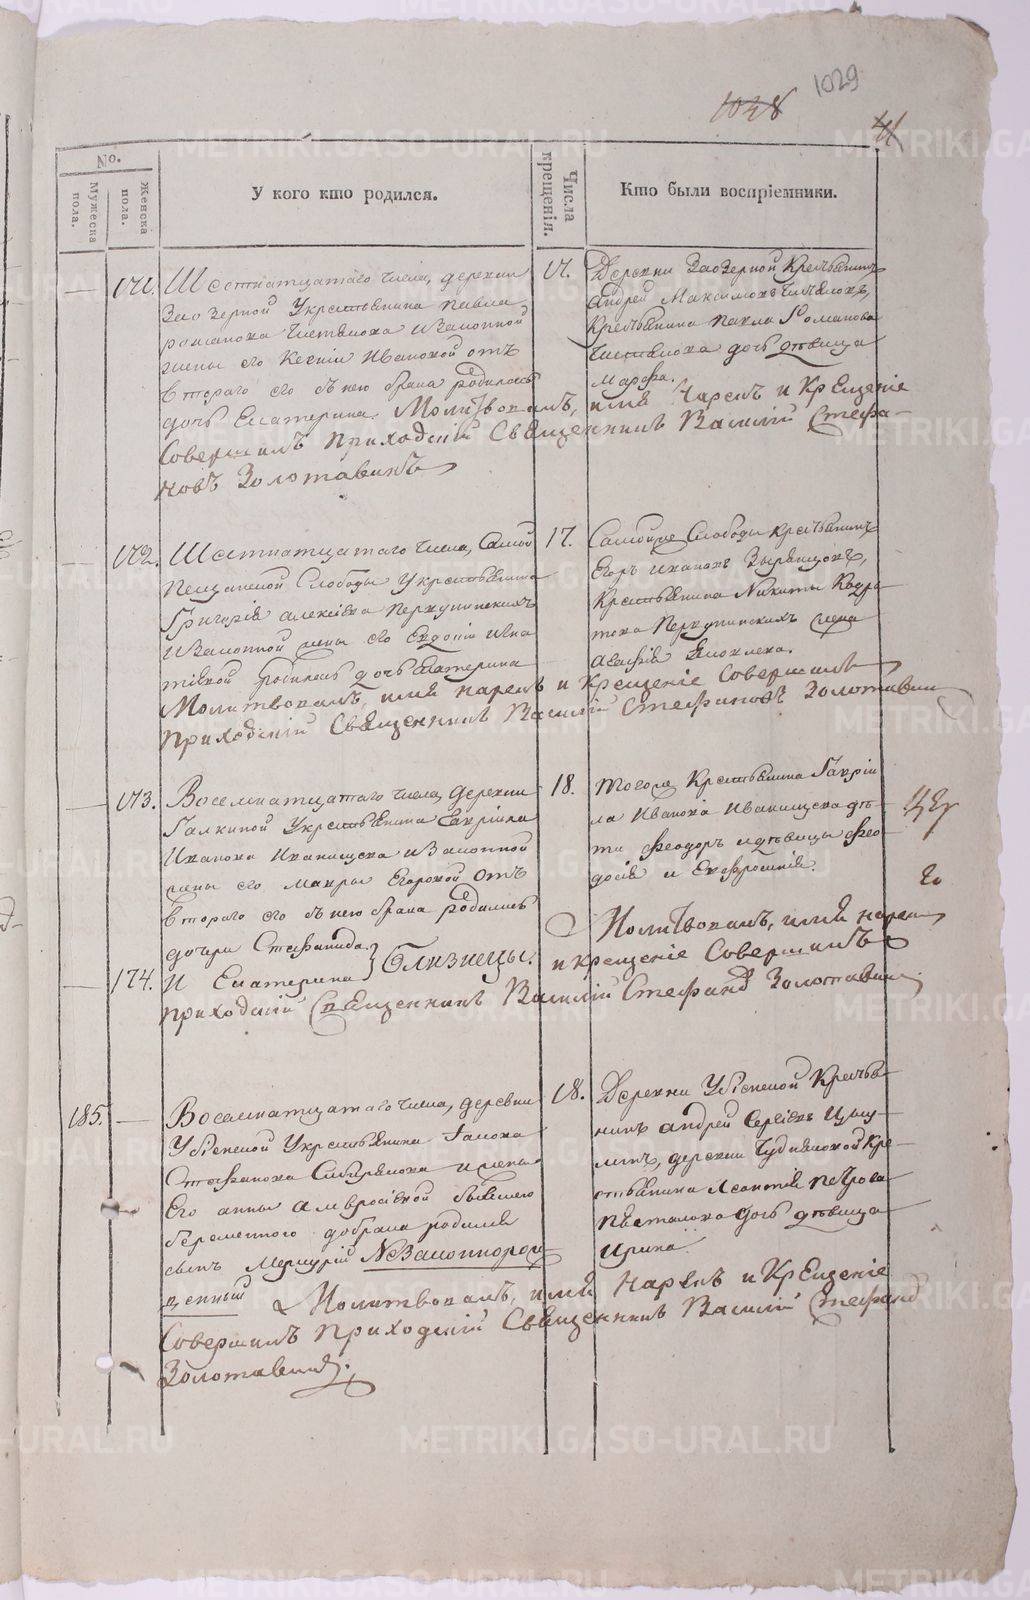 1029
1028
41
No.
Мужеска пола.
Женска пола.
У кого кто родился.
Числа крещенія.
Кто были воспріемники.
171.
Шестнатцатаго числа, деревни
Заозерной Укрестьянина павла
романова Чистякова иЗаконной
жены его Ксеніи Ивановой отъ
втораго его съ нею брака родилась
дочь Екатерина
Молитвовалъ, имя Нарекъ и Крещеніе
Совершилъ приходскій Священникъ Василій Стефа-
новъ Золотавинъ
17.
Деревни Заозерной Крестьянинъ
Андрей Максимовъ Чистяковъ,
Крестьянина павла Романова
Чистякова дочь дѣвица
Марфа.
172.
Шестнатцатаго числа, Самой
Пещанской Слободы Укрестьянина
Григорія алексѣева
иЗаконной жены его Евдокіи Игна
тіевой родилась дочь Екатерина
Молитвовалъ, имя нарекъ и Крещеніе Совершилъ
приходскій Священникъ Василій Стефановъ Золотавин
17.
Самойже Слободы крестьянинъ
Егоръ ивановъ Зырянцовъ,
Крестьянина Никиты Кодра
това жена
Агафія Яковлева.
173.
Восемнатцатаго числа, деревни
Галкиной Укрестьянина Гаврійла
Иванова Иванищева иЗаконной
жены его Мавры Егоровой отъ
втораго его съ нею брака родились
дочери Стефанида
174.
И Екатерина
близнецы.
18.
тогоже Крестьянина Гаврій
ла Иванова Иванищева дѣ
ти Феодоръ идѣвицы Фео
досія и Евфросинія.
Молитвовалъ, имя нарекъ
и крещеніе Совершилъ
приходскій Священникъ Василій Стефановъ Золотавин.
185.
Восемнатцатаго числа, деревни
Убіенной Укрестьянина Іакова
Стефанова Сибирякова ижены
Его анны Амвросіевой бывшею
беременного добрака родился
сынъ Меркурій Незаконнорож
денный
Молитвовалъ, имя Нарекъ и Крещеніе
Совершилъ приходскій Священникъ Василій Стефанов
Золотавин.
18.
Деревни Убіенной Крестья
нинъ Андрей Сергѣевъ
деревни Чудиновской Кре
стьянина Леонтія петрова
дочь дѣвица
Ирина